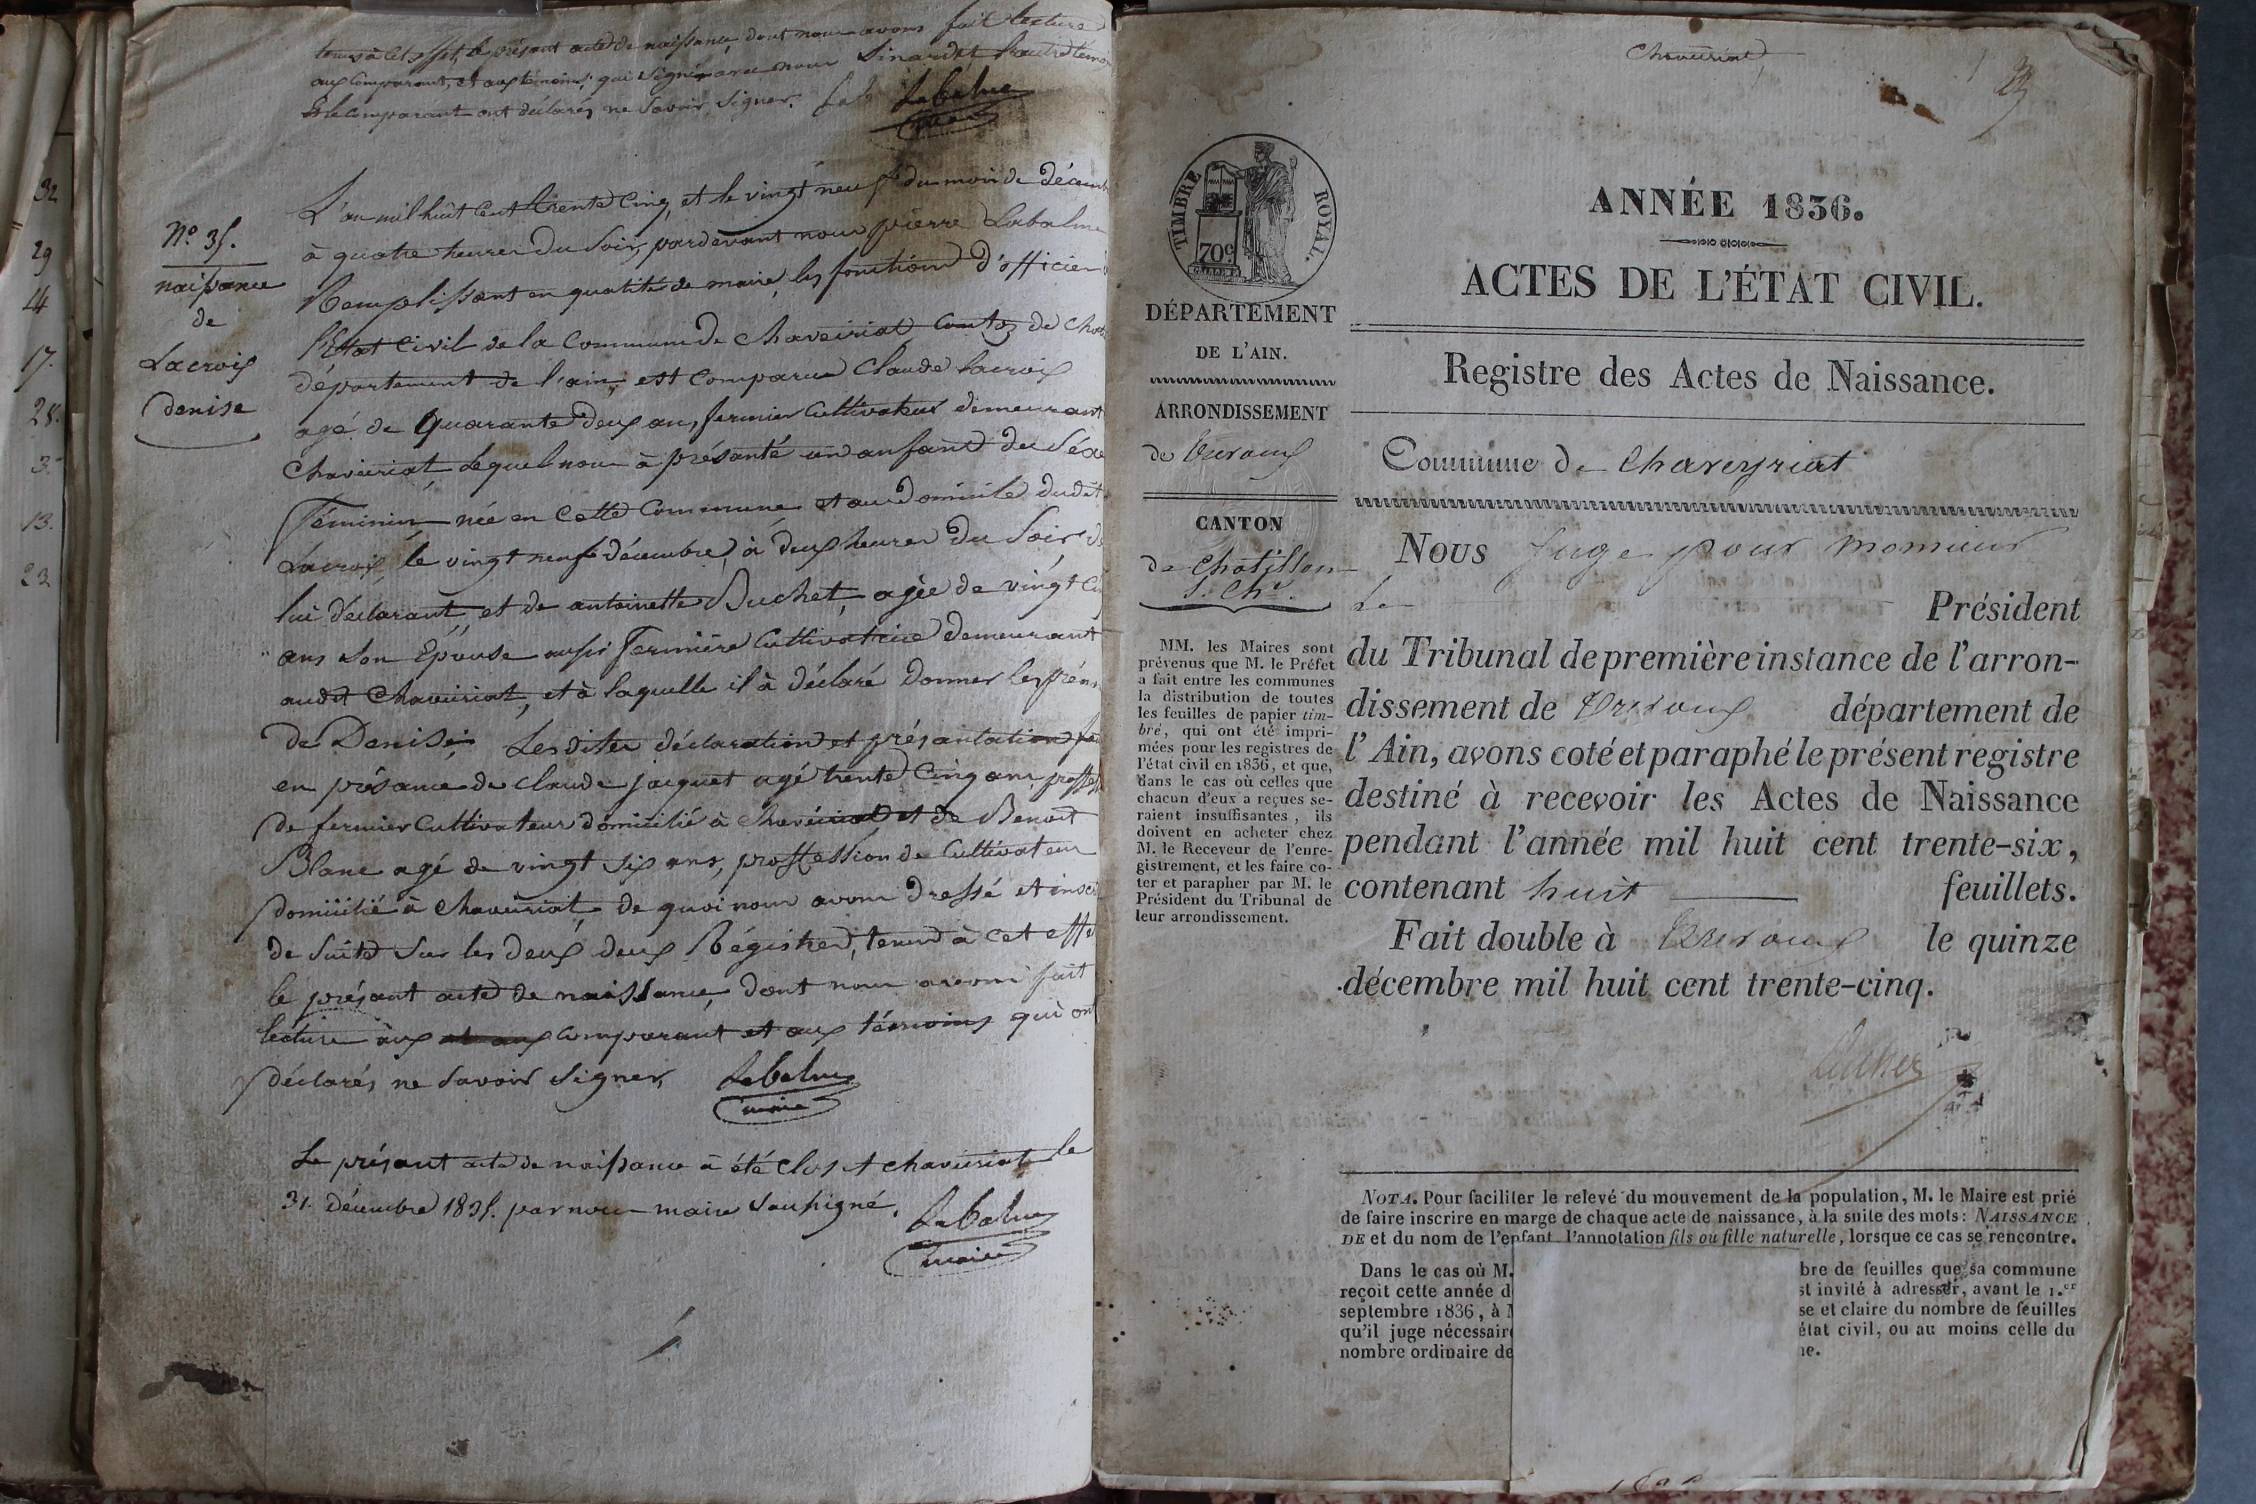 tenus à cet effet, le présent acte de naissance, dont nous avons fait lecture
aux comparant, et aux témoins; qui signé avec nous Sinardet l'autre témoin
Et le comparant ont déclarés ne savoir signer. Labalme
maire
N.° 35.
naissance
de
Lacroix
denise
L'an mil huit cent trente cinq, et le vingt neuf du mois de décemb
à quatre heures du soir, pardevant nous pierre Labalme
Remplissant en qualité de maire, les fonctions d'officier
l'Etat Civil de la Commune de Chaveiriat, canton de Cha
département de l'ain, est comparue Claude Lacroix
agé de quarante deux ans, fermier cultivateur demeurant
Chaveiriat, lequel nous à présanté un anfant du séxe
Féminin, née en cette Commune et au Domicile dudit
Lacroix, le vingt neuf décembre, à deux heures du Soir d
lui déclarant, et de antoinette Buchet, agée de vingt ci
ans son Epouse aussi Fermière Cultivatrice demeurant
audit Chaveiriat, et à laquelle il à déclaré donner les prén
de Denise; Lesdites déclaration et présantation
en présance de claude jacquet agé trente cinq ans, proffess
de fermier cultivateur domicilié à Chavéiriat et de Benoit
Blanc agé de vingt six ans, proffession de Cultivateur
domicilié à chaveiriat, de quoi nous avons Dressé et insc
de suite sur les deux deux Régistres, tenus à cet effe
le présant acte de naissance, dont nous avons fait
lecture aux comparant et aux témoins qui ont
déclarés ne savoir signer. Labalme
maire
Le présant acte de naissance à été clos A chaveiriat le
31. Décembre 1835. par nous maire soussigné.
Labalme
maire
32
29
14
17.
28.
3.
13.
23
Chaveiriat
TIMBRE ROYAL.
70c
ANNÉE 1836.
ACTES DE L'ÉTAT CIVIL.
Registre des Actes de Naissance.
DÉPARTEMENT
DE L'AIN.
ARRONDISSEMENT
de Trevoux
CANTON
de Chatillon
S. Chne.
MM. les Maires sont
prévenus que M. le Préfet
a fait entre les communes
la distribution de toutes
les feuilles de papier tim-
bré, qui ont été impri-
mées pour les registres de
l'état civil en 1836, et que,
dans le cas où celles que
chacun d'eux a reçues se-
raient insuffisantes, ils
doivent en acheter chez
M. le Receveur de l'enre-
gistrement, et les faire co-
ter et parapher par M. le
Président du Tribunal de
leur arrondissement.
Commune de Chaveyriat
Nous Juge pour monsieur
Le Président
du Tribunal de première instance de l'arron-
dissement de Trevoux département de
l'Ain, avons coté et paraphé le présent registre
destiné à recevoir les Actes de Naissance
pendant l'année mil huit cent trente-six,
contenant huit feuillets.
Fait double à Trevoux le quinze
décembre mil huit cent trente-cinq.
NOTA. Pour faciliter le relevé du mouvement de la population, M. le Maire est prié
de faire inscrire en marge de chaque acte de naissance, à la suite des mots: NAISSANCE
DE et du nom de l'enfant l'annotation fils ou fille naturelle, lorsque ce cas se rencontre.
Dans le cas où M. bre de feuilles que sa commune
reçoit cette année d st invité à adresser, avant le 1.er
septembre 1836, à se et claire du nombre de feuilles
qu'il juge nécessaire état civil, ou au moins celle du
nombre ordinaire de ne.